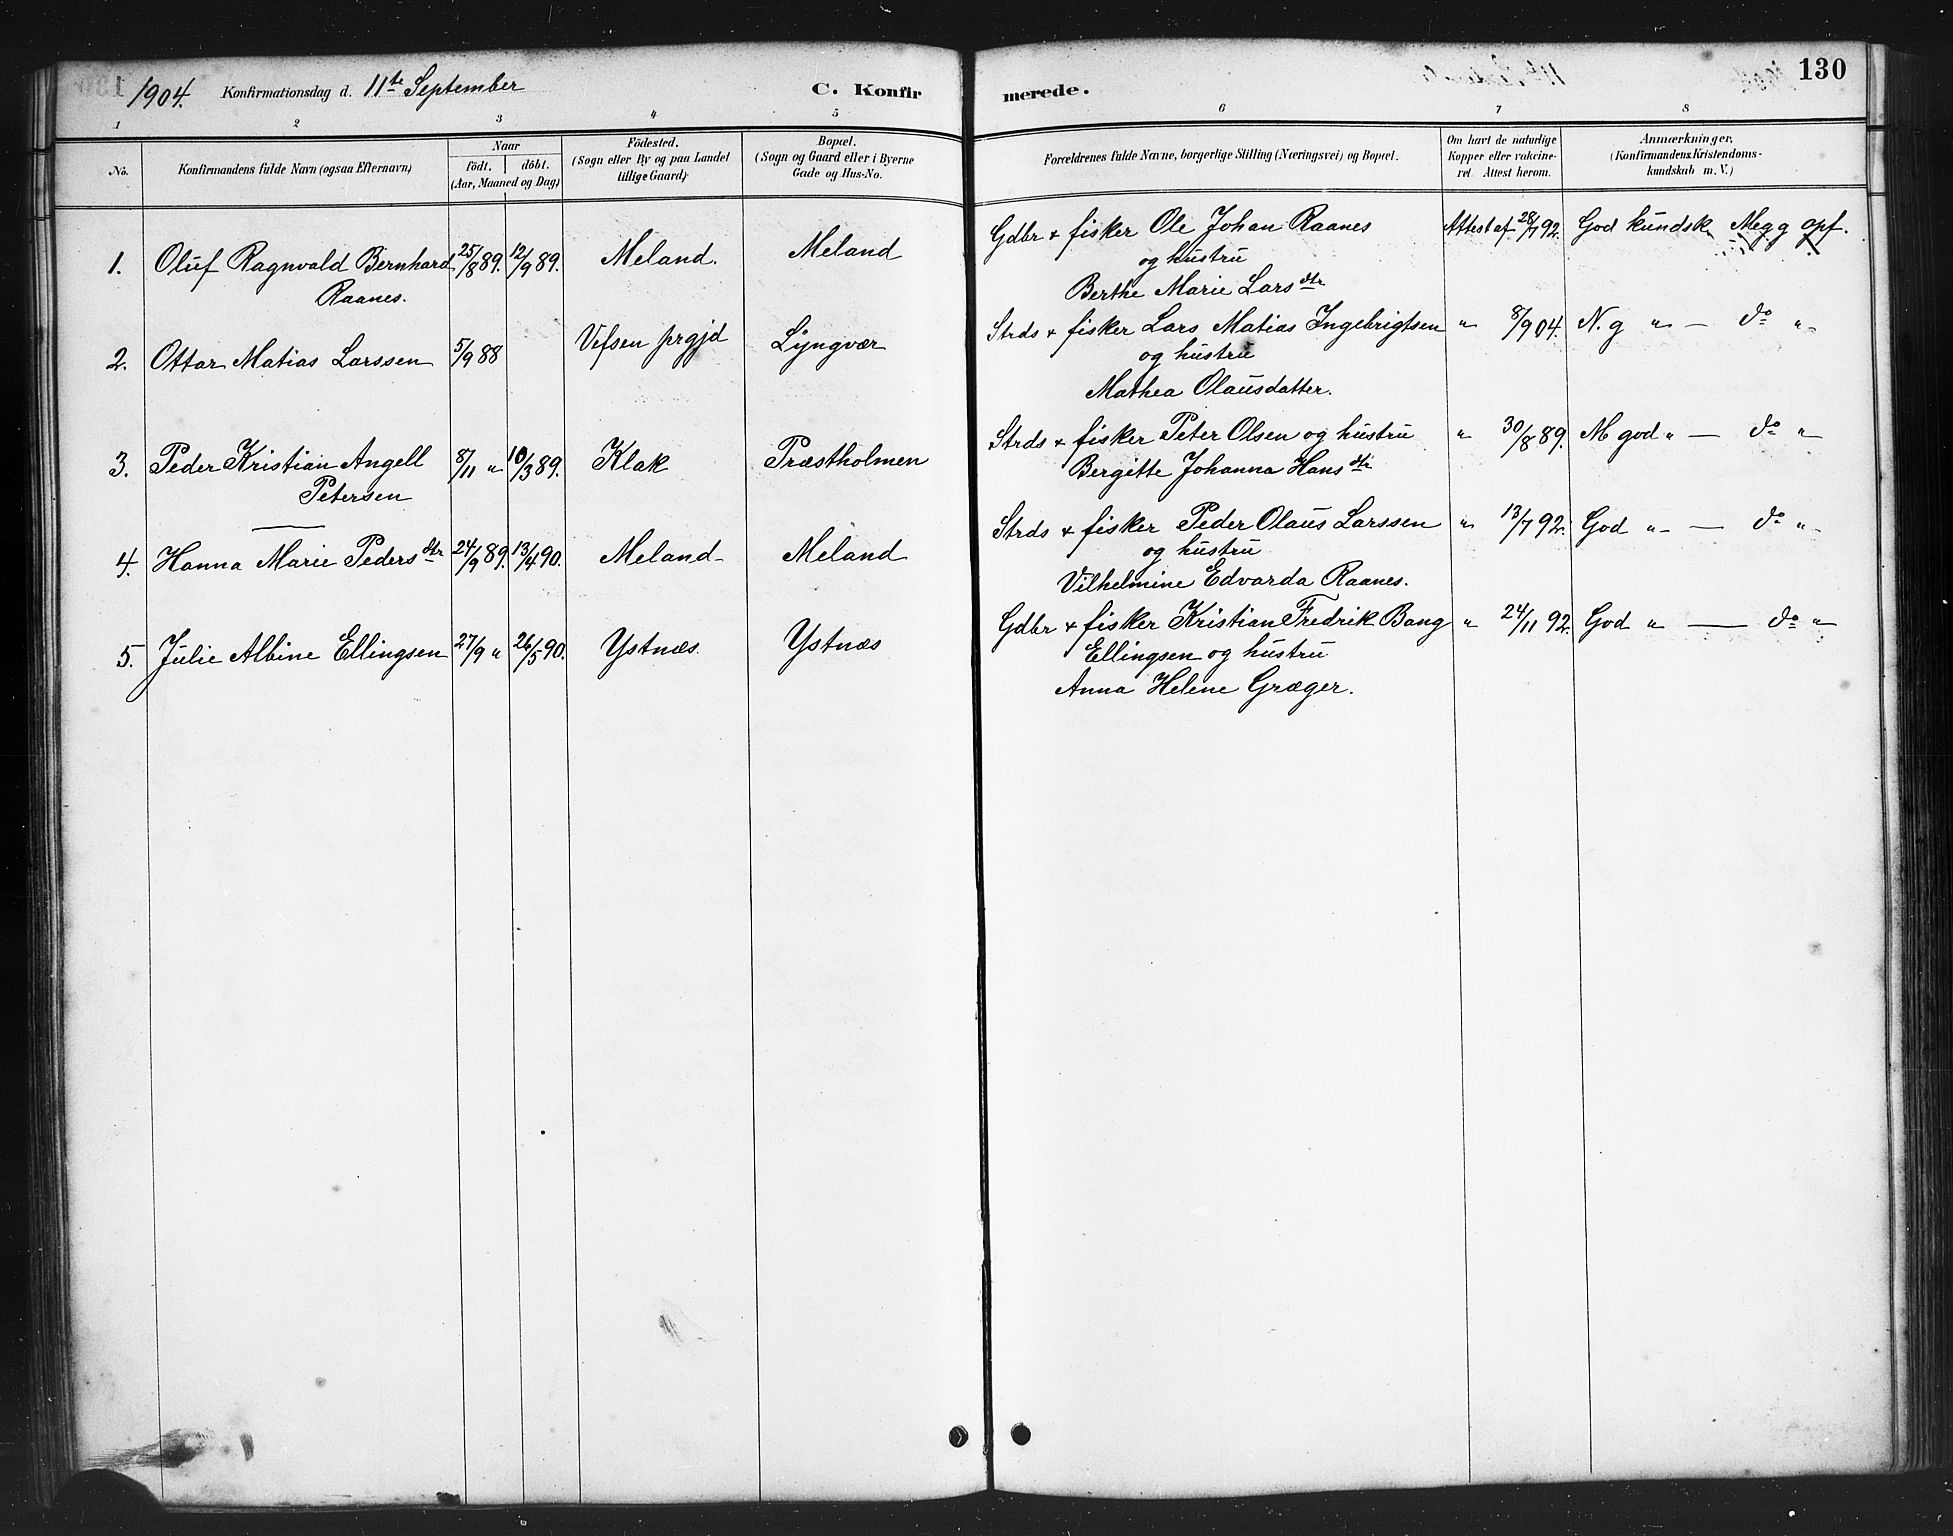 1904. Konfirmationsdag d. 11te September C. Konfirmerede. 130
1 2 3 4 5 6 7 8
No.
Konfirmandens fulde Navn (ogsaa Efternavn)
Naar
födt. döbt.
(Aar, Maaned og Dag)
Födested.
(Sogn eller By og paa Landet
tillige Gaard)
Bopæl.
(Sogn og Gaard eller i Byerne
Gade og Hus-No.
Forældrenes fulde Navne, borgerlige Stilling (Næringsvei) og Bopæl.
Om havt de naturlige
Kopper eller vakcine-
ret. Attest herom.
Anmærkninger,
(Konfirmandens Kristendoms-
kundskab m. V.)
1. Oluf Ragnvald Bernhard 25/8 89. 12/9 89. Meland. Meland Gdbr & fisker Ole Johan Raanes Attest af 28/7 92. God kundsk. Megg opf.
Raanes. og hustru
Berthe Marie Larsdtr
2. Ottar Matias Larssen 5/9 88 Vefsen prgjd Lyngvær Strds & fisker Lars Matias Ingebrigtsen " 8/9 04. N. g " — do "
og hustru
Mathea Olausdatter.
3. Peder Kristian Angell 8/11 " 10/3 89. Klak Præstholmen Strds & fisker Peter Olsen og hustru " 30/8 89. M god " — do "
Petersen Bergitte Johanna Hansdtr
4. Hanna Marie Pedersdtr 24/9 89. 13/4 90. Meland Meland Strds & fisker Peder Olaus Larssen " 13/7 92. God " — do "
og hustru
Vilhelmine Edvarda Raanes.
5. Julie Albine Ellingsen 27/9 " 26/5 90. Ystnæs. Ystnæs Gdbr & fisker Kristian Fredrik Bang " 24/11 92. God " — do "
Ellingsen og hustru
Anna Helene Græger.